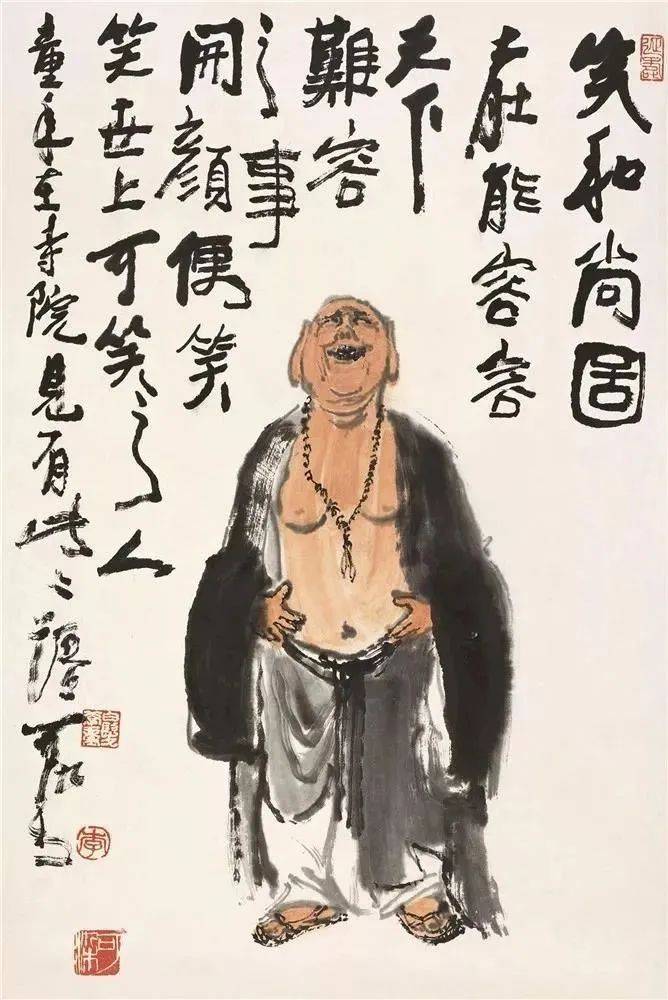 笑和尚图
大肚能容容
天下
難容
之事
開顏便笑
笑世上可笑之人
童年在寺院見有此
可染
李
可染